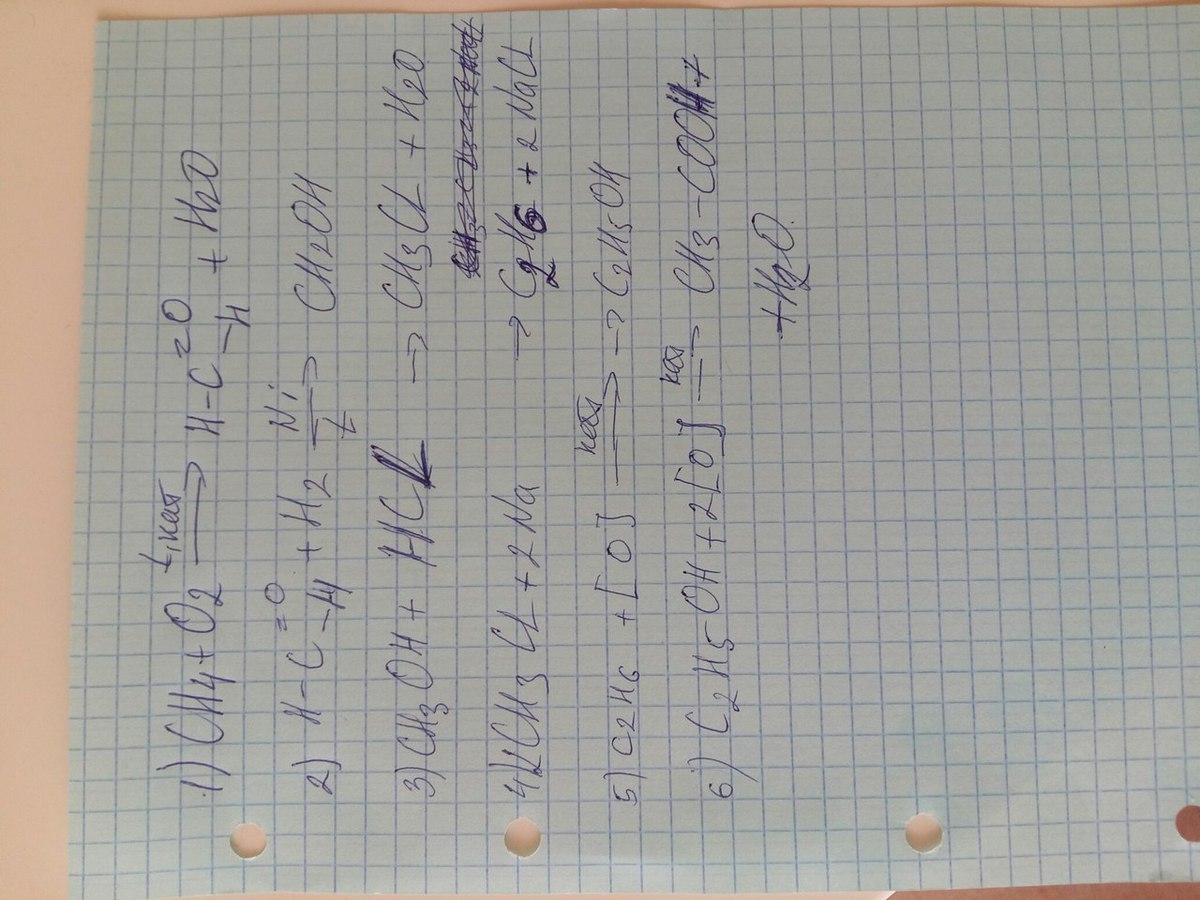 1) CH4 + O2 t, кат → H-C =O -H + H2O
2) H-C =O -H + H2 Ni → t CH2OH
3) CH3OH + HCl → CH3Cl + H2O
4) 2CH3Cl + 2Na → C2H6 + 2NaCl
5) C2H6 + [O] кат → → C2H5OH
6) C2H5OH + 2[O] кат → CH3-COOH +
+ H2O.